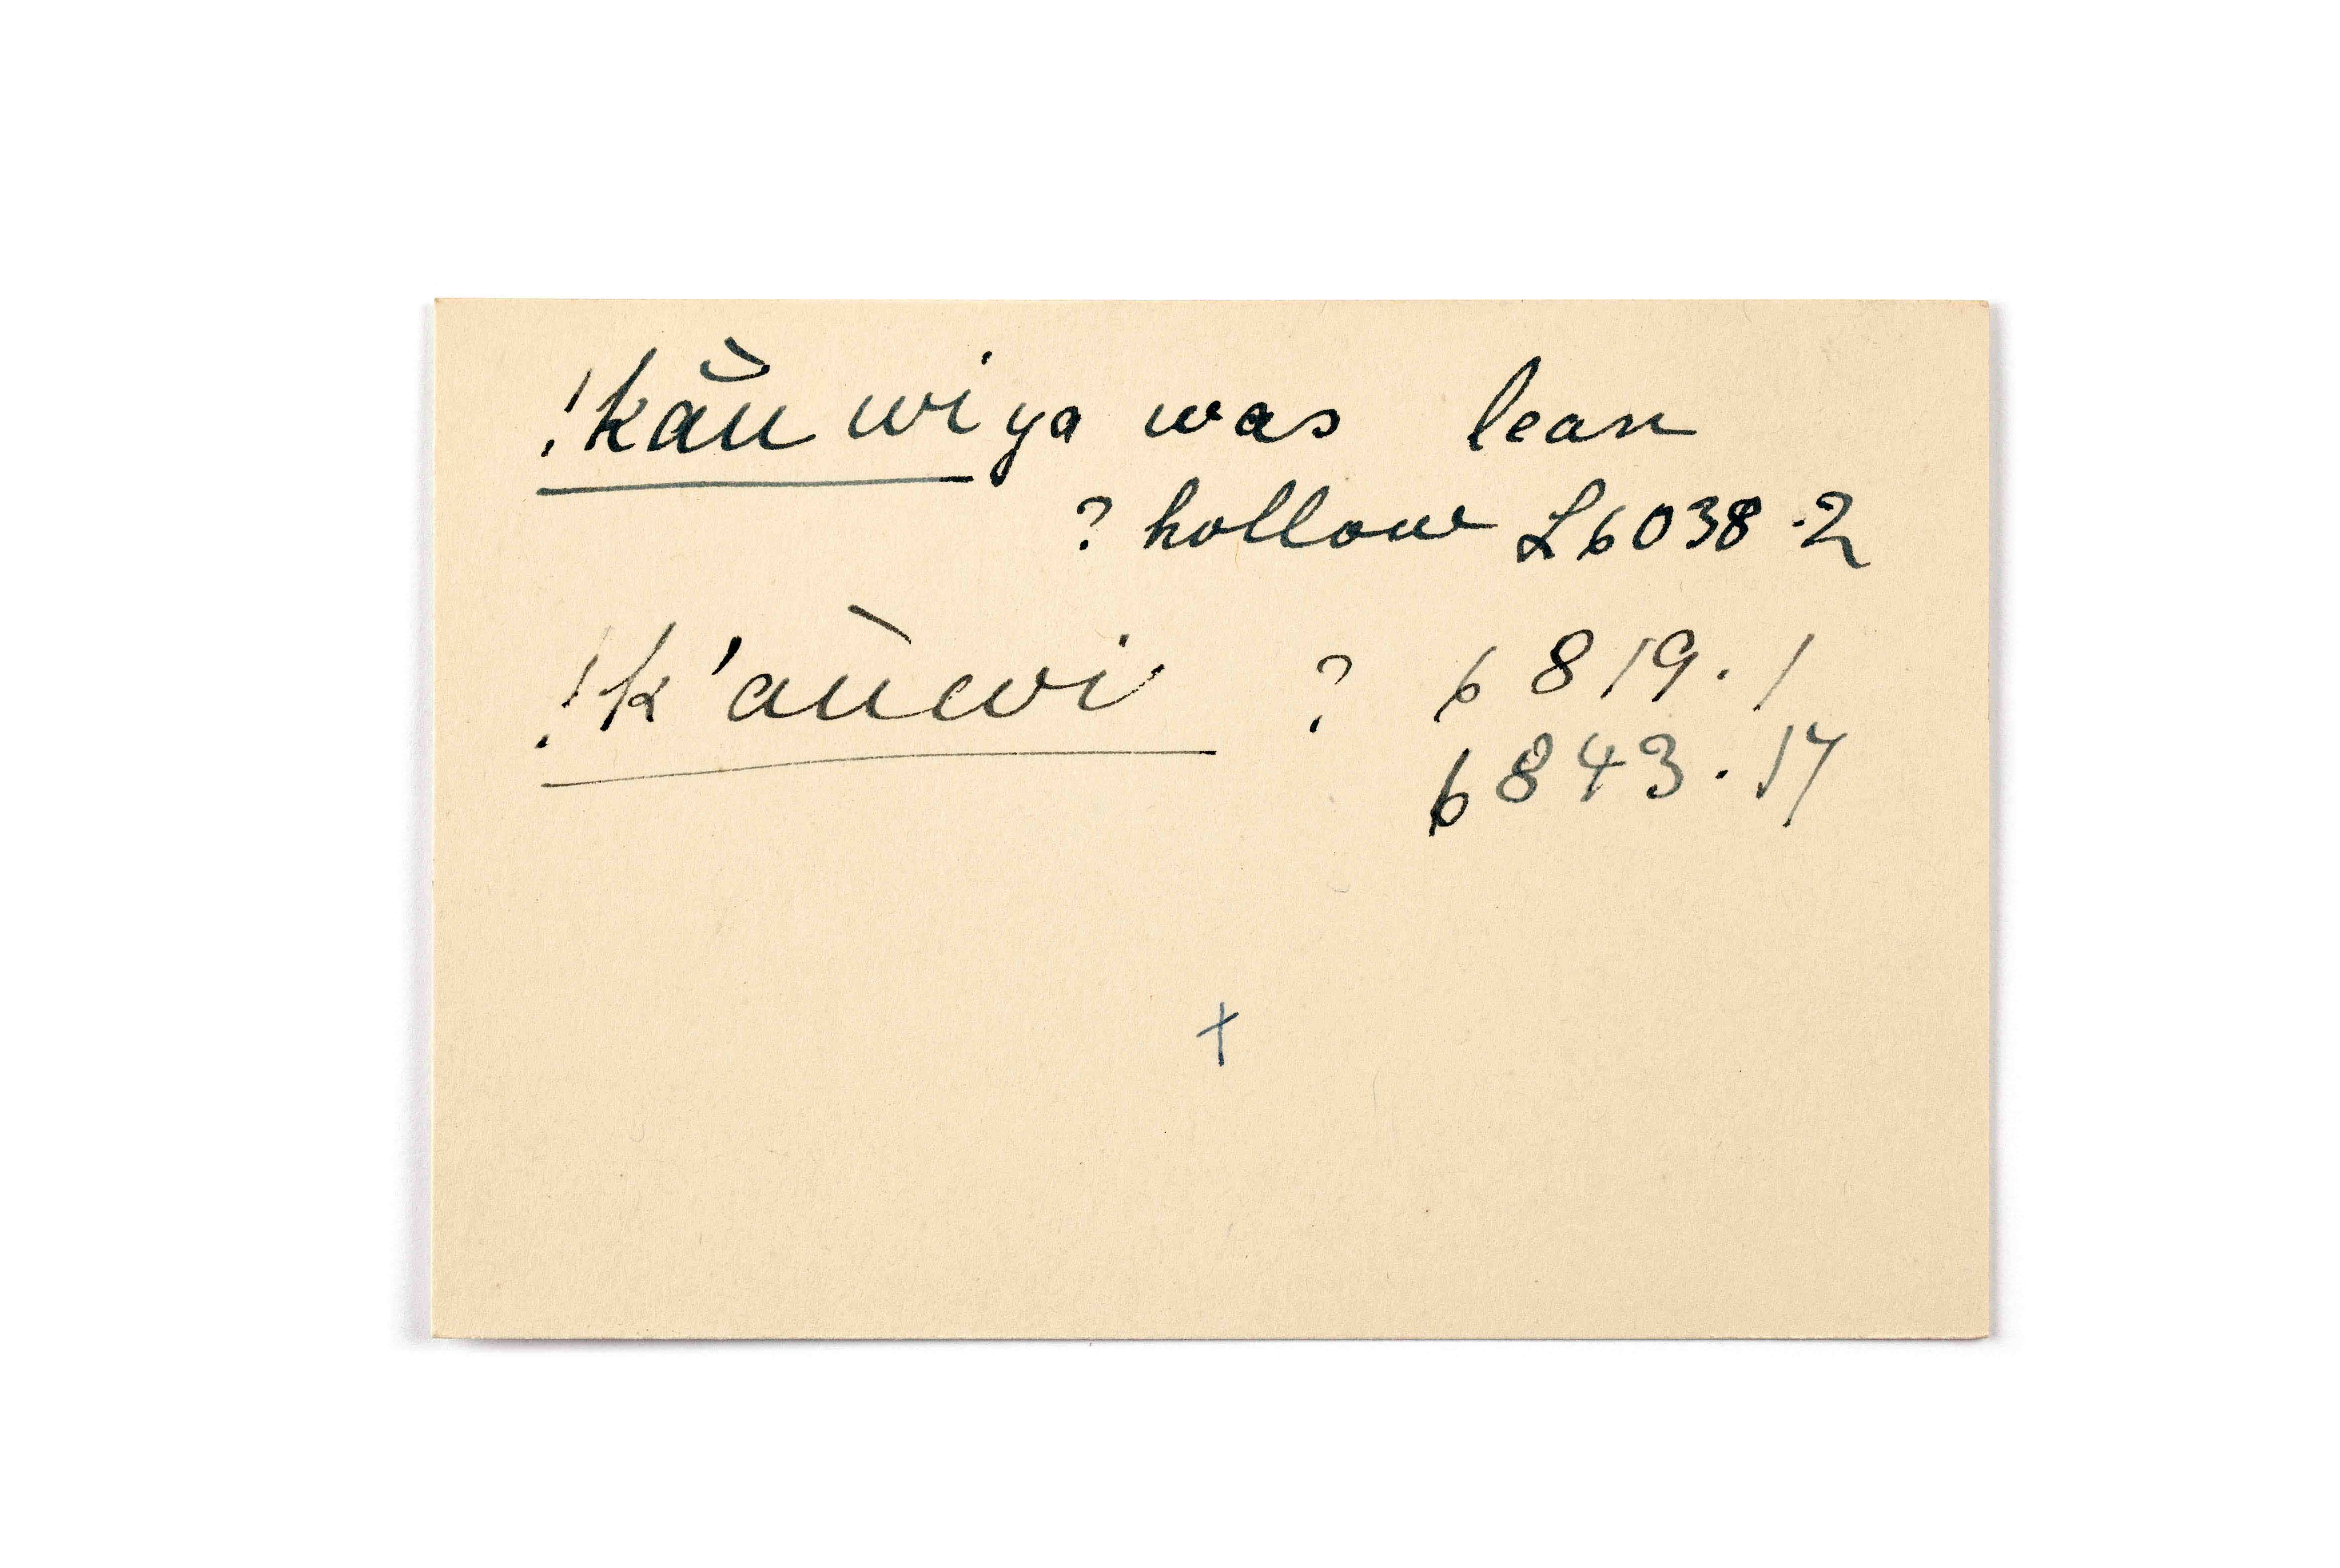 !kaù̯ wi ya was lean
? hollow L6038.2
!k'auùwi ? 6819.1
6843.17
+